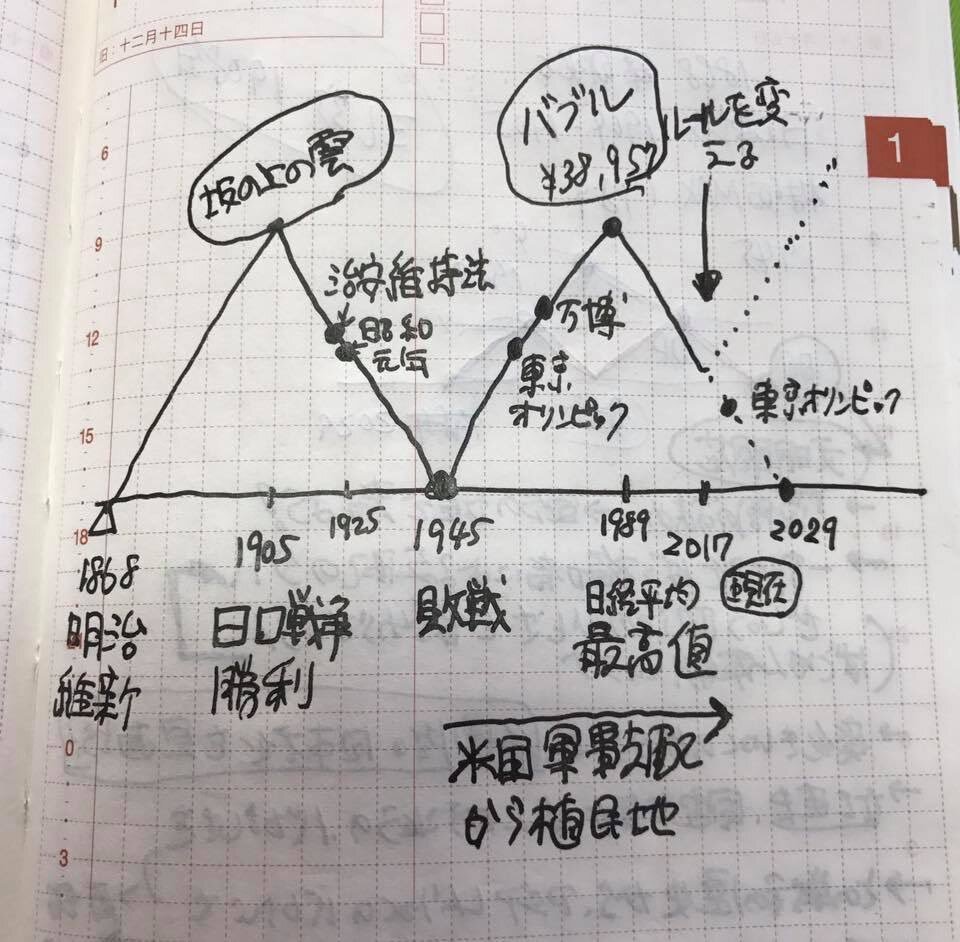 旧:十二月十四日
1
6
9
12
15
18
0
3
坂の上の雲
バブル
¥38,957
ルールを変
える
治安維持法
昭和
元年
万博
東京
オリンピック
東京オリンピック
1868
明治
維新
1905
日口戦争
勝利
1925
1945
敗戦
1989
日経平均
最高値
2017
現在
2029
米国軍事支配
から植民地